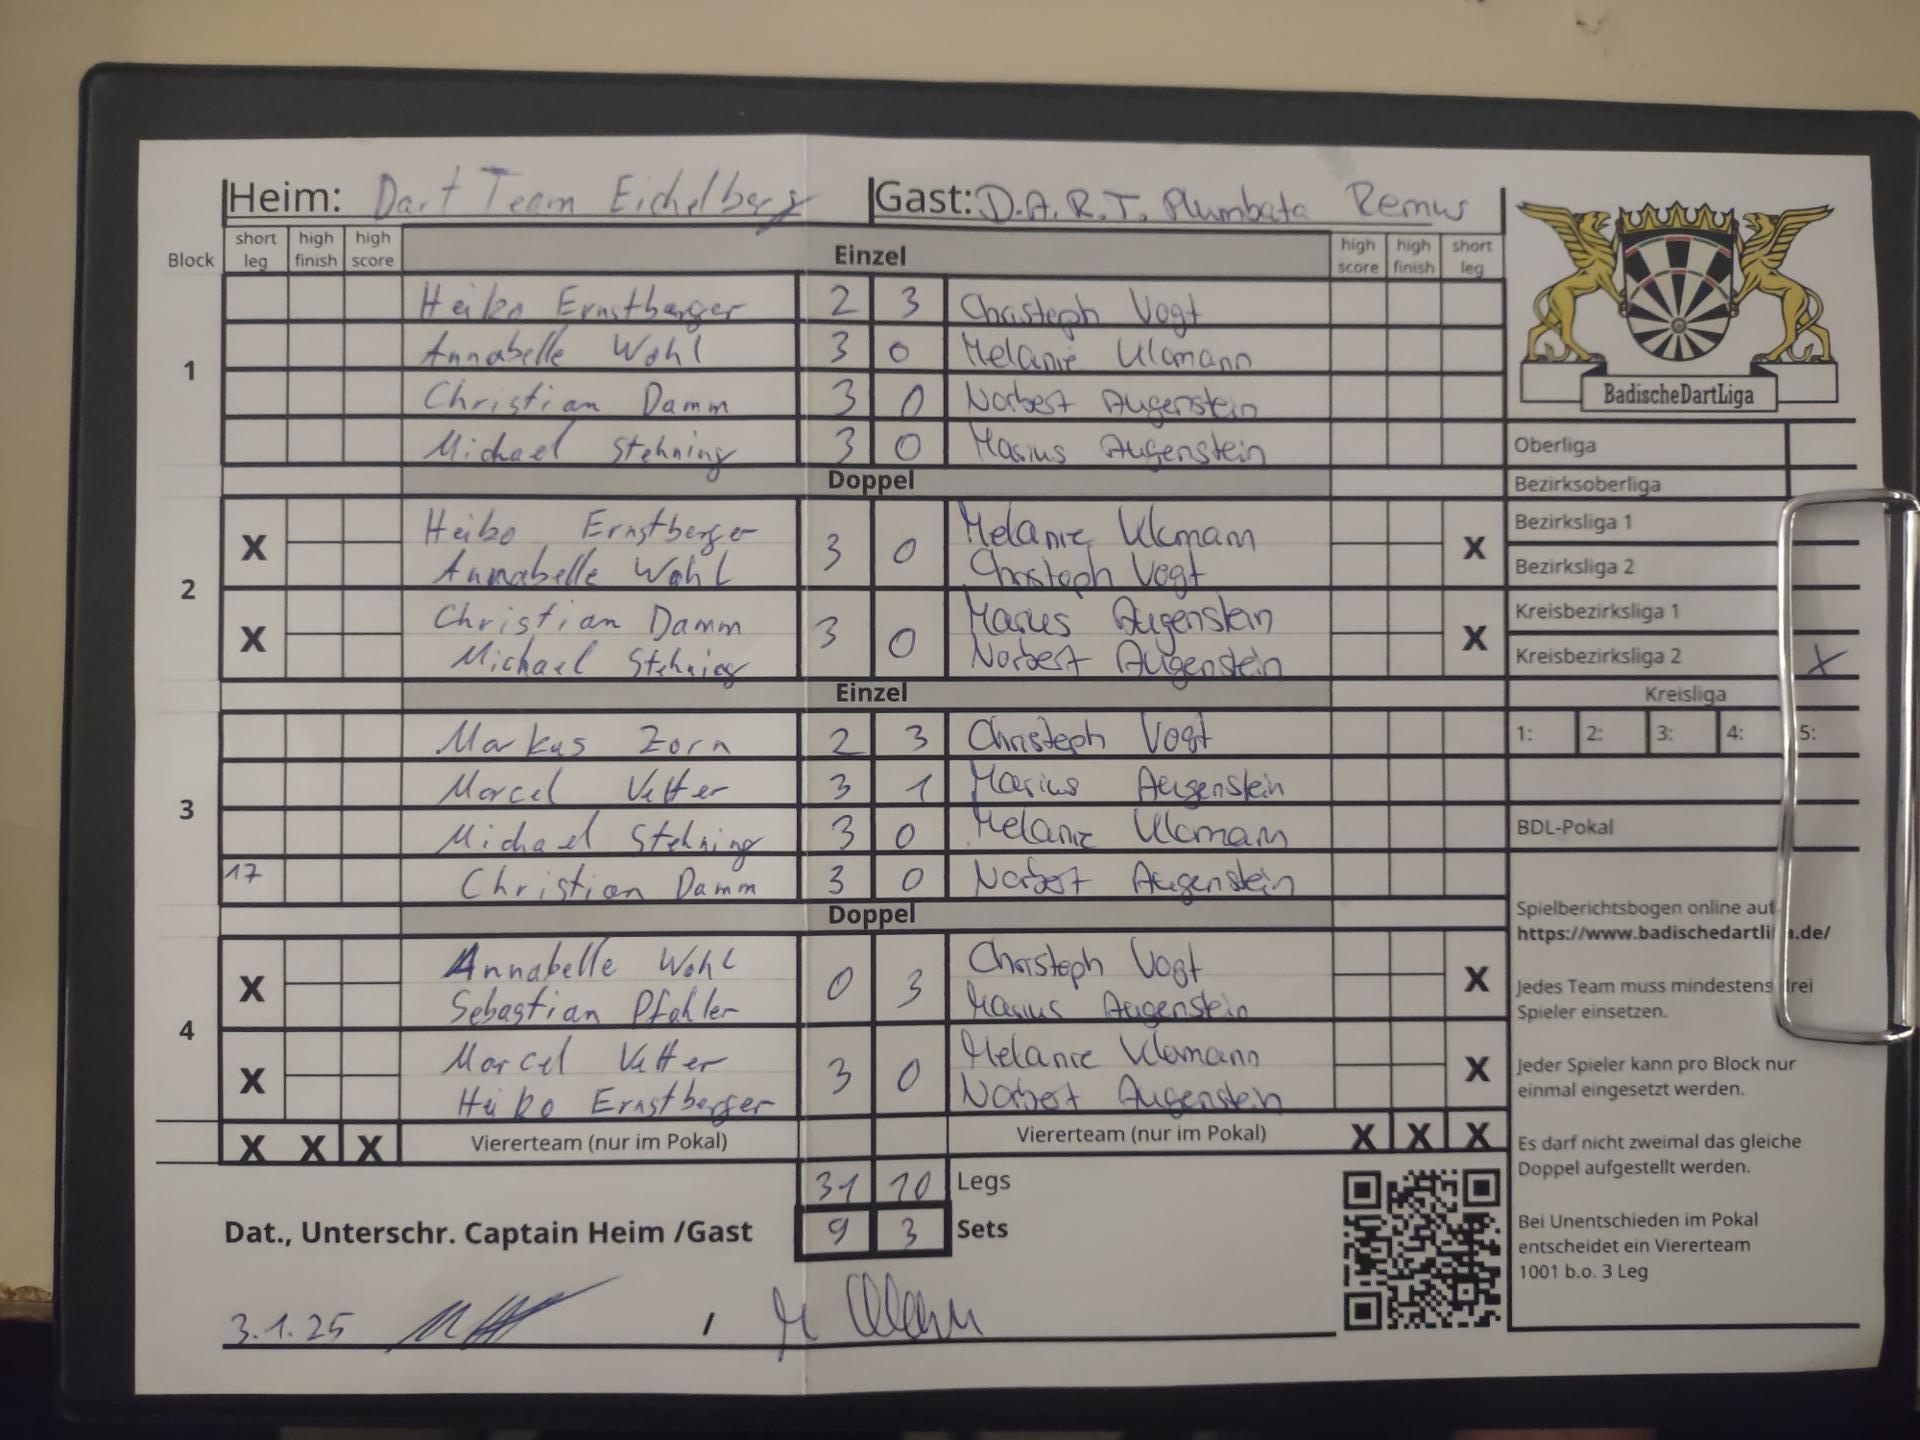 Heim: Dart Team Eichelberg Gast: D.A.R.T. Plumbata Remus
Block short leg high finish high score Einzel high score high finish short leg
1
Heiko Ernstberger 2 3 Christoph Vogt
Annabelle Wohl 3 0 Melanie Ulamann
Christian Damm 3 0 Norbert Augenstein
Michael Stehning 3 0 Marius Augenstein
Doppel
2
X Heiko Ernstberger 3 0 Melanie X
Annabelle Wohl Christoph Vogt
X Christian Damm 3 0 Marius Augenstein X
Michael Stehning Norbert Augenstein
Einzel
3
Markus Zorn 2 3 Christoph Vogt
Marcel Vetter 3 1 Marius Augenstein
Michael Stehning 3 0 Melanie
17 Christian Damm 3 0 Norbert Augenstein
Doppel
4
X Annabelle Wohl 0 3 Christoph Vogt X
Sebastian Pfahler Marius Augenstein
X Marcel Vetter 3 0 Melanie X
Heiko Ernstberger Norbert Augenstein
X X X Viererteam (nur im Pokal) Viererteam (nur im Pokal) X X X
31 10 Legs
9 3 Sets
Dat., Unterschr. Captain Heim /Gast
3.1.25 /
BadischeDartLiga
Oberliga
Bezirksoberliga
Bezirksliga 1
Bezirksliga 2
Kreisbezirksliga 1
Kreisbezirksliga 2 X
Kreisliga
1: 2: 3: 4: 5:
BDL-Pokal
Spielberichtsbogen online auf
https://www.badischedartliga.de/
Jedes Team muss mindestens drei
Spieler einsetzen.
Jeder Spieler kann pro Block nur
einmal eingesetzt werden.
Es darf nicht zweimal das gleiche
Doppel aufgestellt werden.
Bei Unentschieden im Pokal
entscheidet ein Viererteam
1001 b.o. 3 Leg